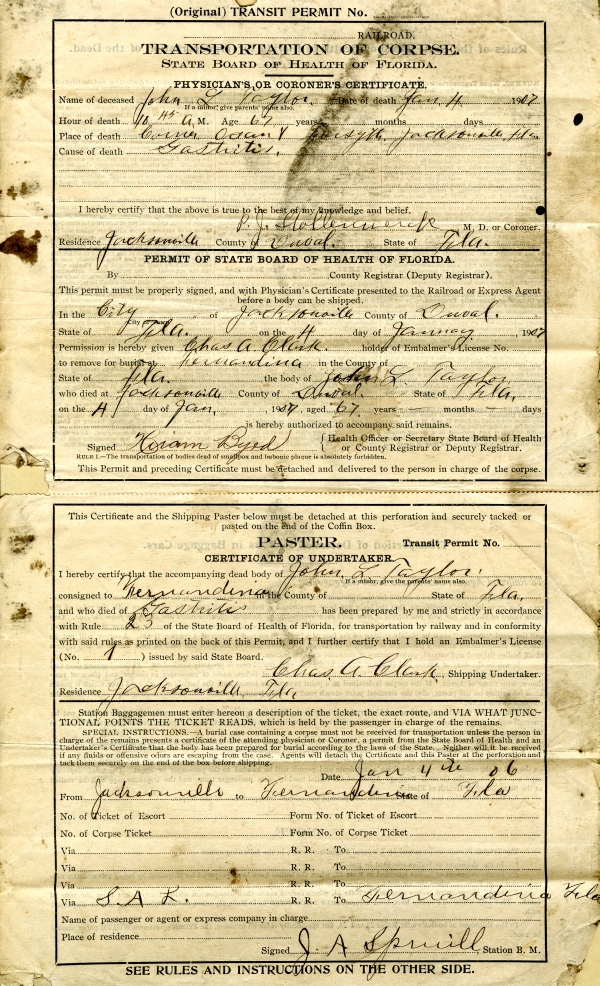 (Original) TRANSIT PERMIT No.
RAILROAD.
TRANSPORTATION OF CORPSE.
STATE BOARD OF HEALTH OF FLORIDA.
PHYSICIAN'S OR CORONER'S CERTIFICATE.
Name of deceased John L Taylor. Date of death Jan 4 1907
If a minor, give parents' name also.
Hour of death 10 45 A M. Age 67 years months days
Place of death Corner Ocean & Forsyth, Jacksonville, Fla
Cause of death Gastritis.
I hereby certify that the above is true to the best of my knowledge and belief.
P. J. Stollenwerck M. D. or Coroner.
Residence Jacksonville County of Duval. State of Fla.
PERMIT OF STATE BOARD OF HEALTH OF FLORIDA.
By County Registrar (Deputy Registrar).
This permit must be properly signed, and with Physician's Certificate presented to the Railroad or Express Agent
before a body can be shipped.
In the City of Jacksonville County of Duval.
State of Fla. on the 4 day of January, 1907
Permission is hereby given Chas A. Clark. holder of Embalmer's License No.
to remove for burial at Fernandina in the County of
State of Fla. the body of John L. Taylor
who died at Jacksonville County of Duval. State of Fla.
on the 4 day of Jan, 1907, aged 67 years — months — days
is hereby authorized to accompany said remains.
Signed Hiram Byrd (Health Officer or Secretary State Board of Health
or County Registrar or Deputy Registrar.
RULE 1.—The transportation of bodies dead of smallpox and bubonic plague is absolutely forbidden.
This Permit and preceding Certificate must be detached and delivered to the person in charge of the corpse.
This Certificate and the Shipping Paster below must be detached at this perforation and securely tacked or
pasted on the end of the Coffin Box.
PASTER. Transit Permit No.
CERTIFICATE OF UNDERTAKER.
I hereby certify that the accompanying dead body of John L Taylor.
If a minor, give parents' name also.
consigned to Fernandina in the County of State of Fla.
and who died of Gastritis has been prepared by me and strictly in accordance
with Rule 23 of the State Board of Health of Florida, for transportation by railway and in conformity
with said rules as printed on the back of this Permit, and I further certify that I hold an Embalmer's License
(No. 1) issued by said State Board.
Chas. A. Clark, Shipping Undertaker.
Residence Jacksonville, Fla
Station Baggagemen must enter hereon a description of the ticket, the exact route, and VIA WHAT JUNC-
TIONAL POINTS THE TICKET READS, which is held by the passenger in charge of the remains.
SPECIAL INSTRUCTIONS.—A burial case containing a corpse must not be received for transportation unless the person in
charge of the remains presents a certificate of the attending physician or Coroner, a permit from the State Board of Health and an
Undertaker's Certificate that the body has been prepared for burial according to the laws of the State. Neither will it be received
if any fluids or offensive odors are escaping from the case. Agents will detach the Certificate and this Paster at the perforation and
tack them securely on the end of the box before shipping.
Date Jan 4th 06
From Jacksonville to Fernandina State of Fla
No. of Ticket of Escort Form No. of Ticket of Escort
No. of Corpse Ticket Form No. of Corpse Ticket
Via R. R. To
Via R. R. To
Via R. R. To
Via S. A. L. R. R. To Fernandina Fla
Name of passenger or agent or express company in charge
Place of residence
Signed J. A Spruill, Station B. M.
SEE RULES AND INSTRUCTIONS ON THE OTHER SIDE.